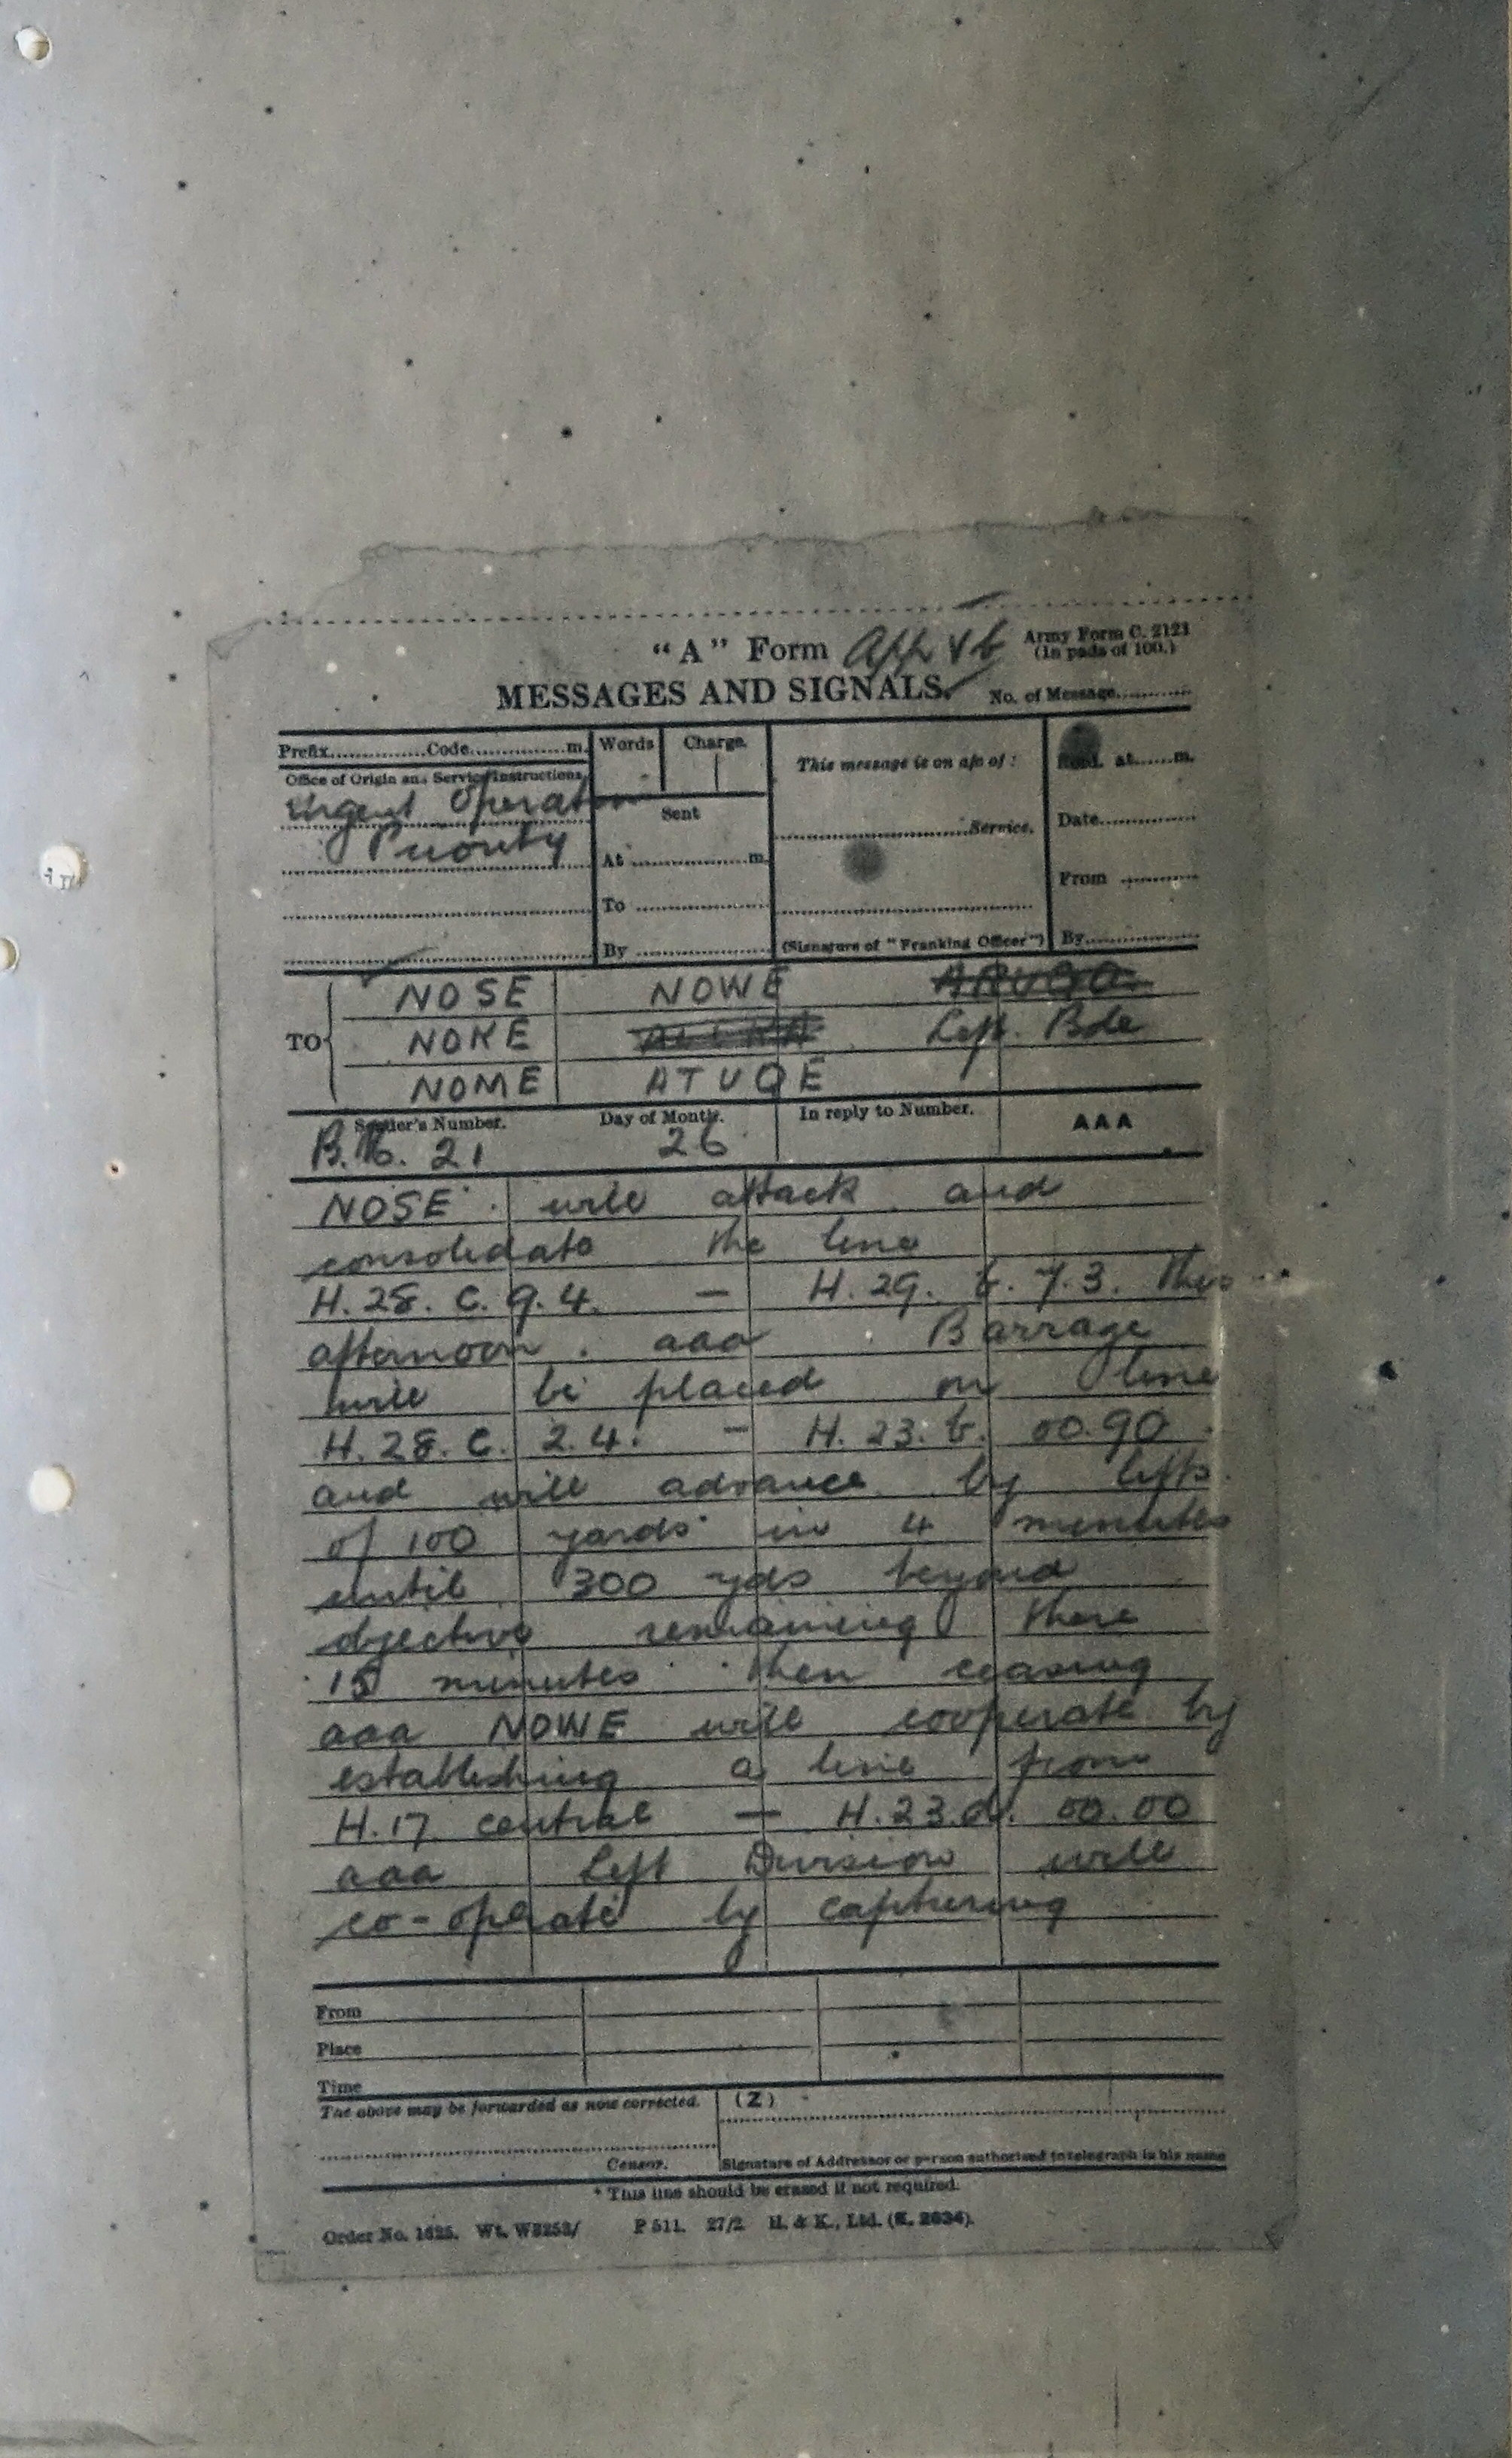 "A" Form App V b Army Form C. 2121
(In pads of 100.)
MESSAGES AND SIGNALS. No. of Message............
Prefix..............Code..............m. Words Charge.
This message is on a/c of :
Recd. at.......m.
Office of Origin and Service Instructions
Urgent Operation
Priority
Sent
At ..............m.
To ..............
By ..............
..............Service.
(Signature of "Franking Officer")
Date..............
From ..............
By..............
TO
NOSE NOWE
NOKE Left. Bde
NOME ATUQE
Sender's Number. Day of Month. In reply to Number. AAA
B.M. 21 26
NOSE will attack and
consolidate the line
H.28. C. 9.4. — H.29. b. 7.3. this
afternoon . aaa Barrage
will be placed on line
H.28. C. 2.4. — H. 23. b. 00.90
and will advance by lifts
of 100 yards in 4 minutes
until 300 yds beyond
objective remaining there
15 minutes then ceasing
aaa NOWE will cooperate by
establishing a line from
H.17 central — H.23.d. 00.00
aaa Left Division will
co-operate by capturing
From
Place
Time
The above may be forwarded as now corrected. (Z)
Censor. Signature of Addressor or person authorised to telegraph in his name
* This line should be erased if not required.
Order No. 1625. Wt. W3253/ P 511. 27/2 H. & K., Ltd. (E. 2634).